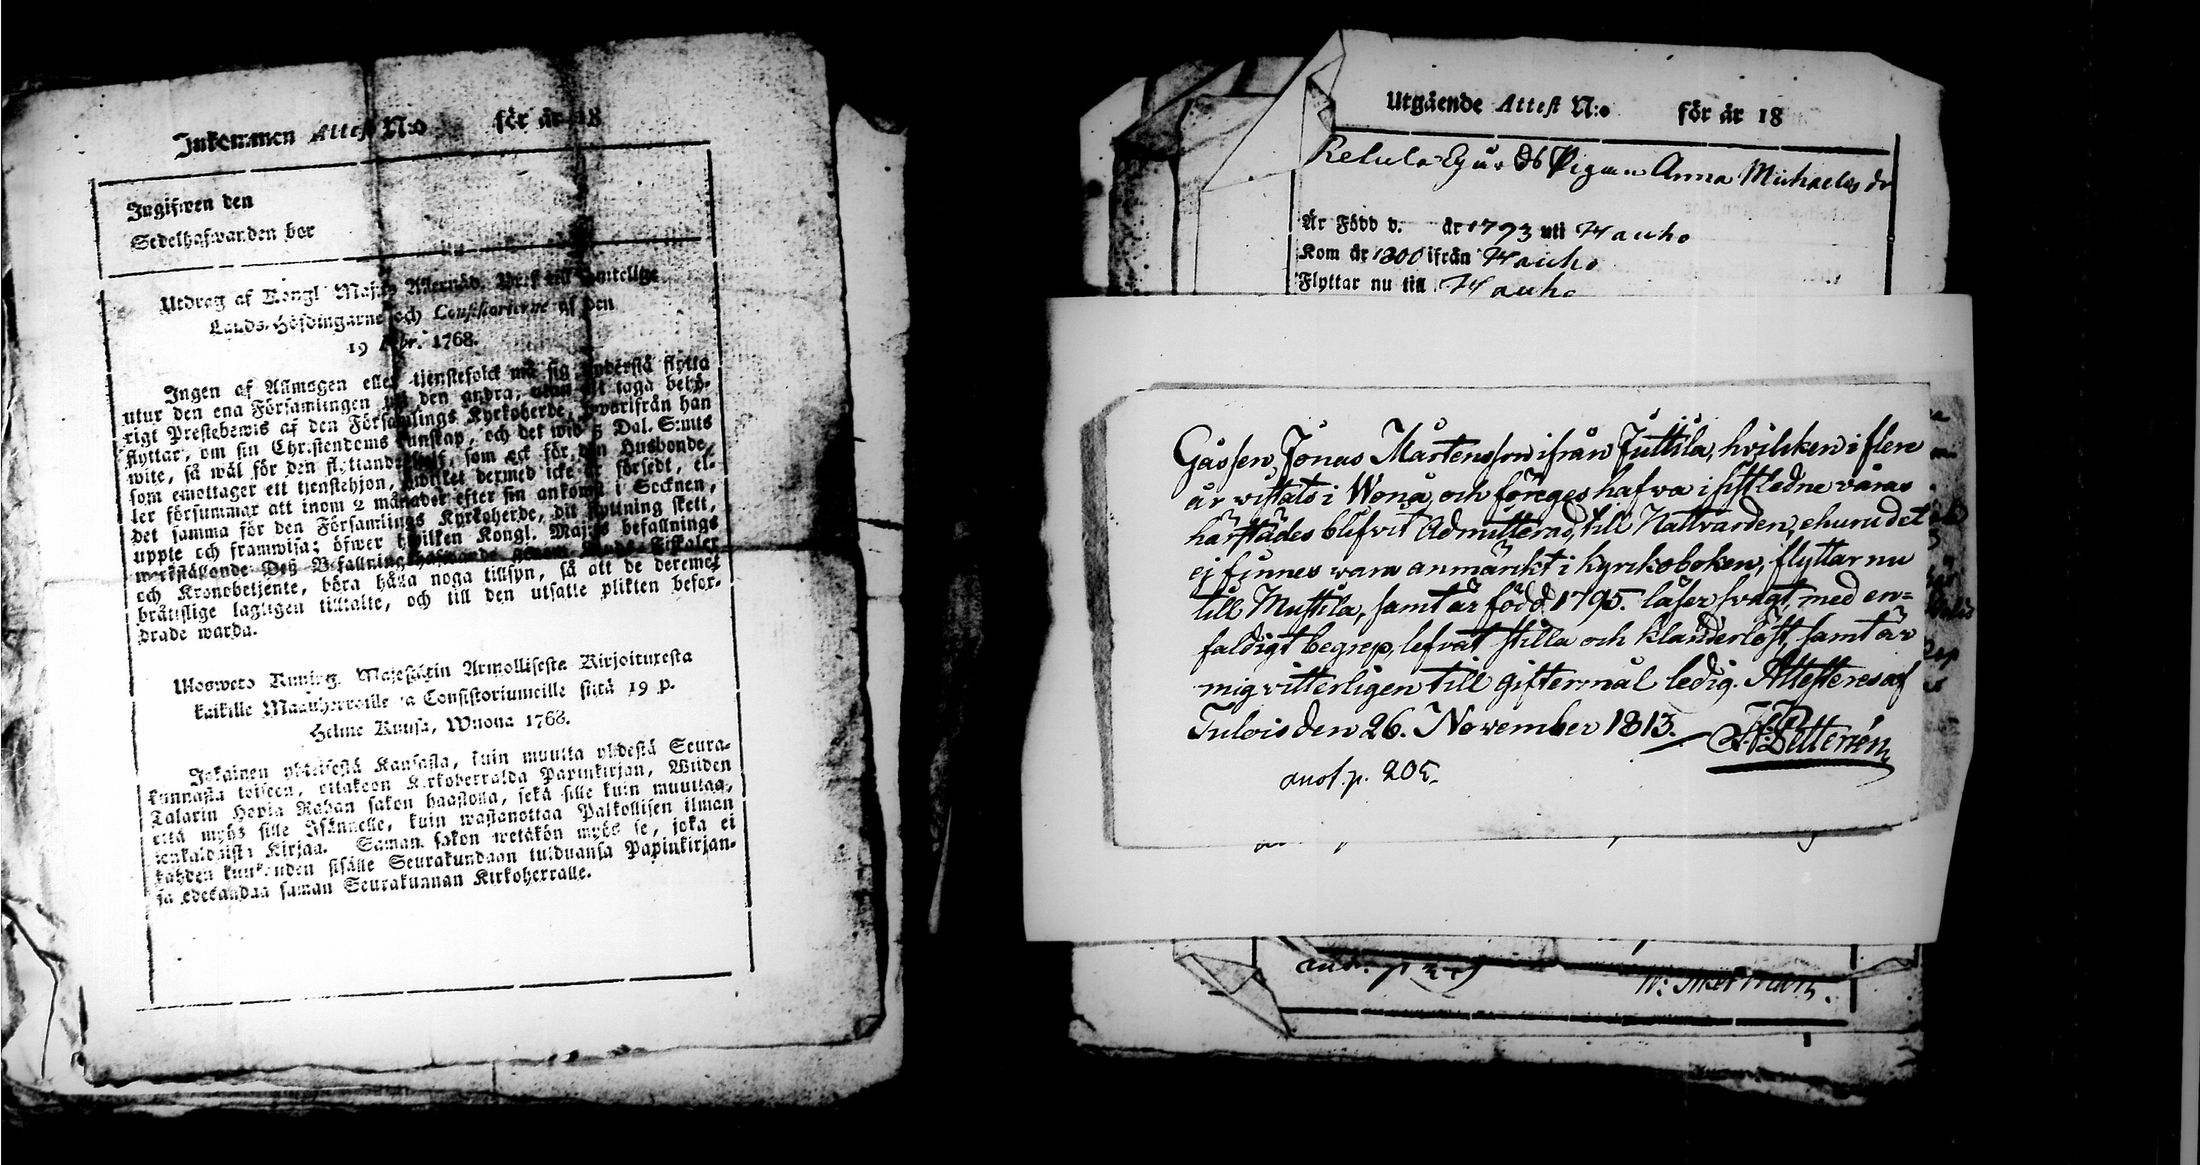 Inkommen Attest N:o för år 18
Ingifwen den
Sedelhafwanden bor
Utdrag af Kongl Maj:ts Allernåd. Bref till samtelige
Lands-Höfdingarne och Consistorierne af den
19 Febr. 1768.
Ingen af Allmogen eller tjenstefolck må sig understå flytta
utur den ena Församlingen til den andra, utan att taga behö-
rigt Prestebewis af den Församlings Kyrkoherde, hwarifrån han
flyttar, om sin Christendoms kunskap, och det wid 5 Dal. S:mts
wite, så wäl för den flyttande sjelf, som ock för den Husbonde,
som emottager ett tjenstehjon, hwilket dermed icke är försedt, el-
ler försummar att inom 2 månader efter sin ankomst i Socknen,
det samma för den Församlings Kyrkoherde, dit flyttning skett,
uppte och framwisa; öfwer hwilken Kongl. Maj:ts befallnings
werkställande Deß Befallningshafwande genom Lands-Fiskaler
och Kronobetjente, böra hålla noga tillsyn, så att de deremot
bråttslige lagligen tilltalte, och till den utsatte plikten befor-
drade warda.
Ulosweto Kuning. Majestätin Armollisesta Kirjoituxesta
kaikille Maanherroille ja Consistoriumeille siitä 19 p.
Helme Kuusa, Wuona 1768.
Jokainen yhteisestä Kansasta, kuin muutta yhdestä Seura-
kunnasta toiseen, ottakoon Kirkoherralda Papinkirjan, Wiiden
Talarin Hopia Rahan sakon haastolla, sekä sille kuin muuttaa,
että myös sille Isännelle, kuin wastanottaa Palkollisen ilman
senkaldaista Kirjaa. Saman sakon wetäkön myös se, joka ei
kahden kuukauden sisälle Seurakundaan tulduansa Papinkirjan-
sa edeskandaa saman Seurakunnan Kirkoherralle.
Utgående Attest N:o för år 18
Relula Egu. Ds Pigan Anna Michaelsdr
Är Född d. år 1793 uti Hauho
Kom år 1800 ifrån Hauho
Flyttar nu till Hauho
Gåssen, Jonas Mårtensson ifrån Juttila, hvilcken i flere
år wistats i Wonå, och föreges hafva i sistledne våras
härstädes blifvit Admitterad, till Nattvarden, ehuru det
ej finnes vara anmärkt i kyrkoboken, flyttar nu
till Muttila, samt är född 1795. läser svagt, med en=
faldigt begrep, lefvat stilla och klanderlöst, samt är
mig vitterligen till giftermål ledig. Attesteras af
Tulois den 26. November 1813. H: Petterson
anot. p. 205.
W: Åkerman.